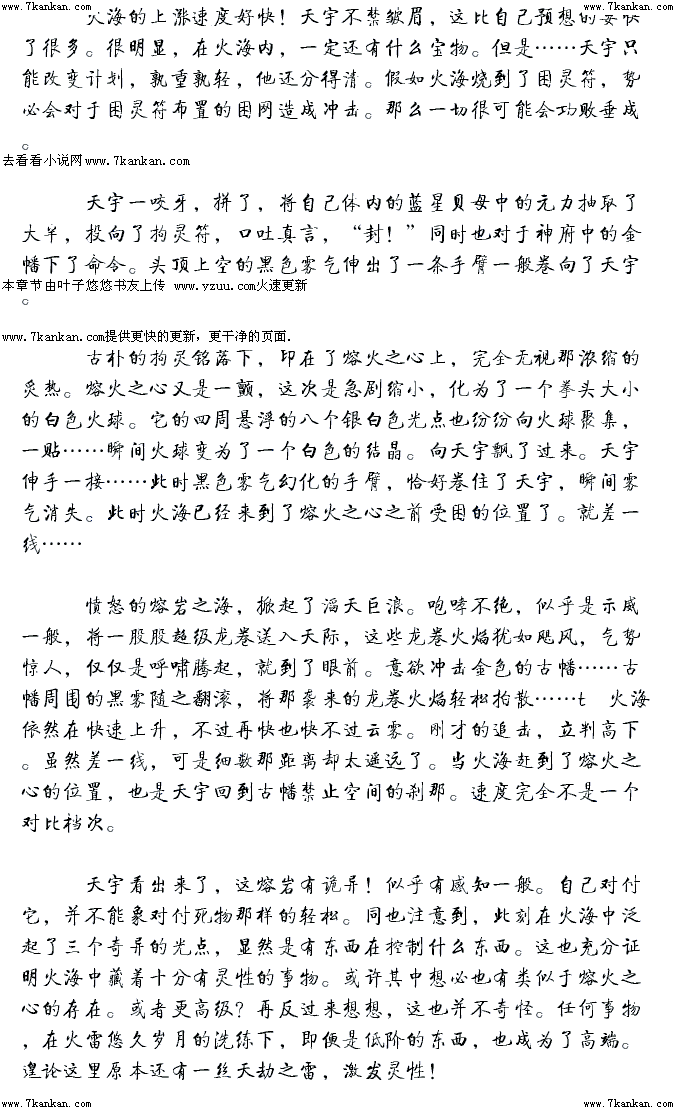 www.7kankan.com www.7kankan.com
火海的上涨速度好快！天宇不禁皱眉，这比自己预想的要快
了很多。很明显，在火海内，一定还有什么宝物。但是……天宇只
能改变计划，孰重孰轻，他还分得清。假如火海烧到了困灵符，势
必会对于困灵符布置的困网造成冲击。那么一切很可能会功败垂成
。
去看看小说网www.7kankan.com
天宇一咬牙，拼了，将自己体内的蓝星贝母中的元力抽取了
大半，投向了拘灵符，口吐真言，“封！”同时也对于神府中的金
幡下了命令。头顶上空的黑色雾气伸出了一条手臂一般卷向了天宇
。
本章节由叶子悠悠书友上传 www.yzuu.com火速更新
www.7kankan.com提供更快的更新，更干净的页面.
古朴的拘灵铭落下，印在了熔火之心上，完全无视那浓缩的
炙热。熔火之心又是一颤，这次是急剧缩小，化为了一个拳头大小
的白色火球。它的四周悬浮的八个银白色光点也纷纷向火球聚集，
一贴……瞬间火球变为了一个白色的结晶。向天宇飘了过来。天宇
伸手一接……此时黑色雾气幻化的手臂，恰好卷住了天宇，瞬间雾
气消失。此时火海已经来到了熔火之心之前受困的位置了。就差一
线……
愤怒的熔岩之海，掀起了滔天巨浪。咆哮不绝，似乎是示威
一般，将一股股超级龙卷送入天际，这些龙卷火焰犹如飓风，气势
惊人，仅仅是呼啸腾起，就到了眼前。意欲冲击金色的古幡……古
幡周围的黑雾随之翻滚，将那袭来的龙卷火焰轻松抬散……t 火海
依然在快速上升，不过再快也快不过云雾。刚才的追击，立判高下
。虽然差一线，可是细数那距离却太遥远了。当火海赶到了熔火之
心的位置，也是天宇回到古幡禁止空间的刹那。速度完全不是一个
对比档次。
天宇看出来了，这熔岩有诡异！似乎有感知一般。自己对付
它，并不能象对付死物那样的轻松。同也注意到，此刻在火海中泛
起了三个奇异的光点，显然是有东西在控制什么东西。这也充分证
明火海中藏着十分有灵性的事物。或许其中想必也有类似于熔火之
心的存在。或者更高级？再反过来想想，这也并不奇怪。任何事物
，在火雷悠久岁月的洗练下，即便是低阶的东西，也成为了高端。
遑论这里原本还有一丝天劫之雷，激发灵性！
www.7kankan.com www.7kankan.com